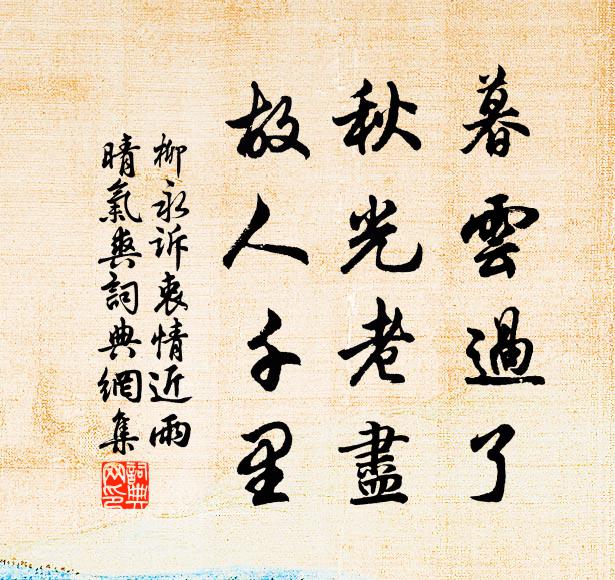 暮雲過了
秋光老盡
故人千里
柳永訴衷情近雨
晴氣爽詞典網集
詞典
网印